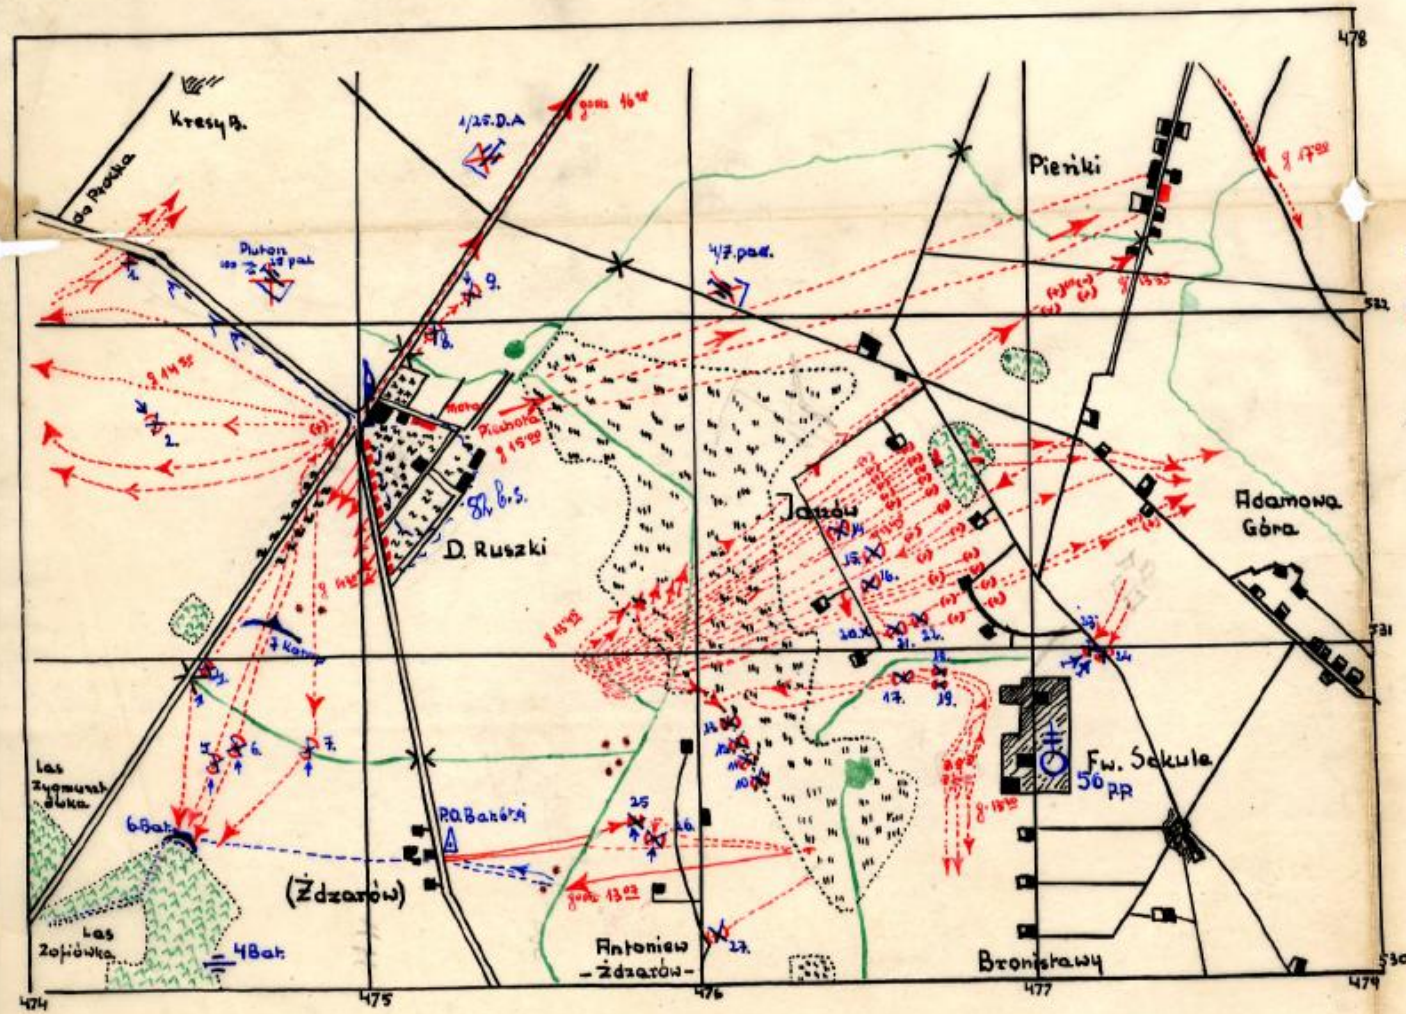 478
Kresy B.
do Płocka
1/25.D.A
godz 16⁰⁰
Pieńki
g 17⁰⁰
Pluton
25 pal.
4/7.pac.
1.
9.
8.
532
g 14³⁰
2.
Piechota
g 15⁰⁰
82 b.s.
D. Ruszki
Janów
14
15.
16.
Adamowa
Góra
7 komp
g 15⁴⁵
20
21.
22.
23.
24
531
17.
18.
19.
5.
6.
7.
13
12
11
10
Fw. Sekuła
56 pp
Las
Zygmunt
ówka
6 Bat.
P.O. Baterii
25
26.
(Żdżarów)
godz 13⁰⁷
Las
Zofiówka
4 Bat.
Antoniew
- Żdżarów -
27.
Bronisławy
530
474
475
476
477
479